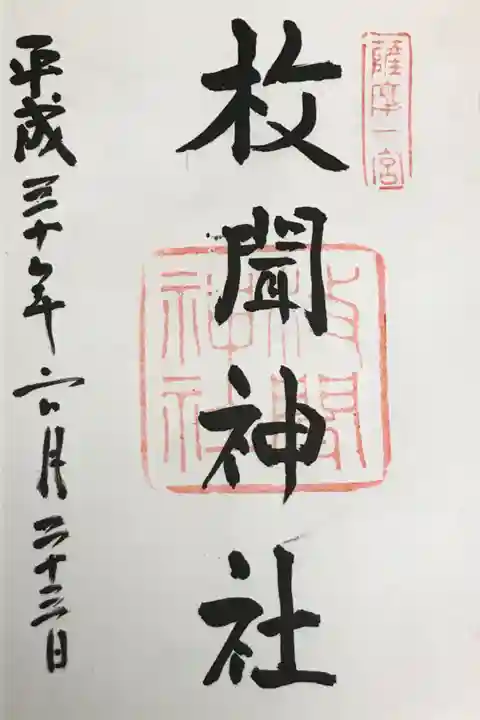 薩摩一宮
枚聞神社
枚聞
神社
平成三十年六月二十三日